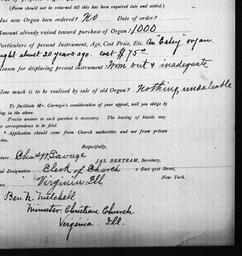 (Form should not be returned till this has been enquired into and settled.)
Has new Organ been ordered? No Date of order?
Amount already raised toward purchase of Organ? 1000
Particulars of present Instrument, Age, Cost Price, Etc. An "Estey" organ
bought about 20 years ago cost $75=
Reason for displacing present instrument? Worn out & inadequate
How much is to be realised by sale of old Organ? Nothing, unsaleable
To facilitate Mr. Carnegie's consideration of your appeal, will you oblige
by filling in the above.
Precise answer to each question is necessary. The leaving of blanks may
correspondence to be filed.
* Application should come from Church authorities and not from private
Respectfully,
JAS. BERTRAM, Secretary,
Chas W Savage
Clerk of Church
2 East 91st Street,
New York.
Virginia Ill
Ben N. Mitchell
Minister Christian Church
Virginia Ill.